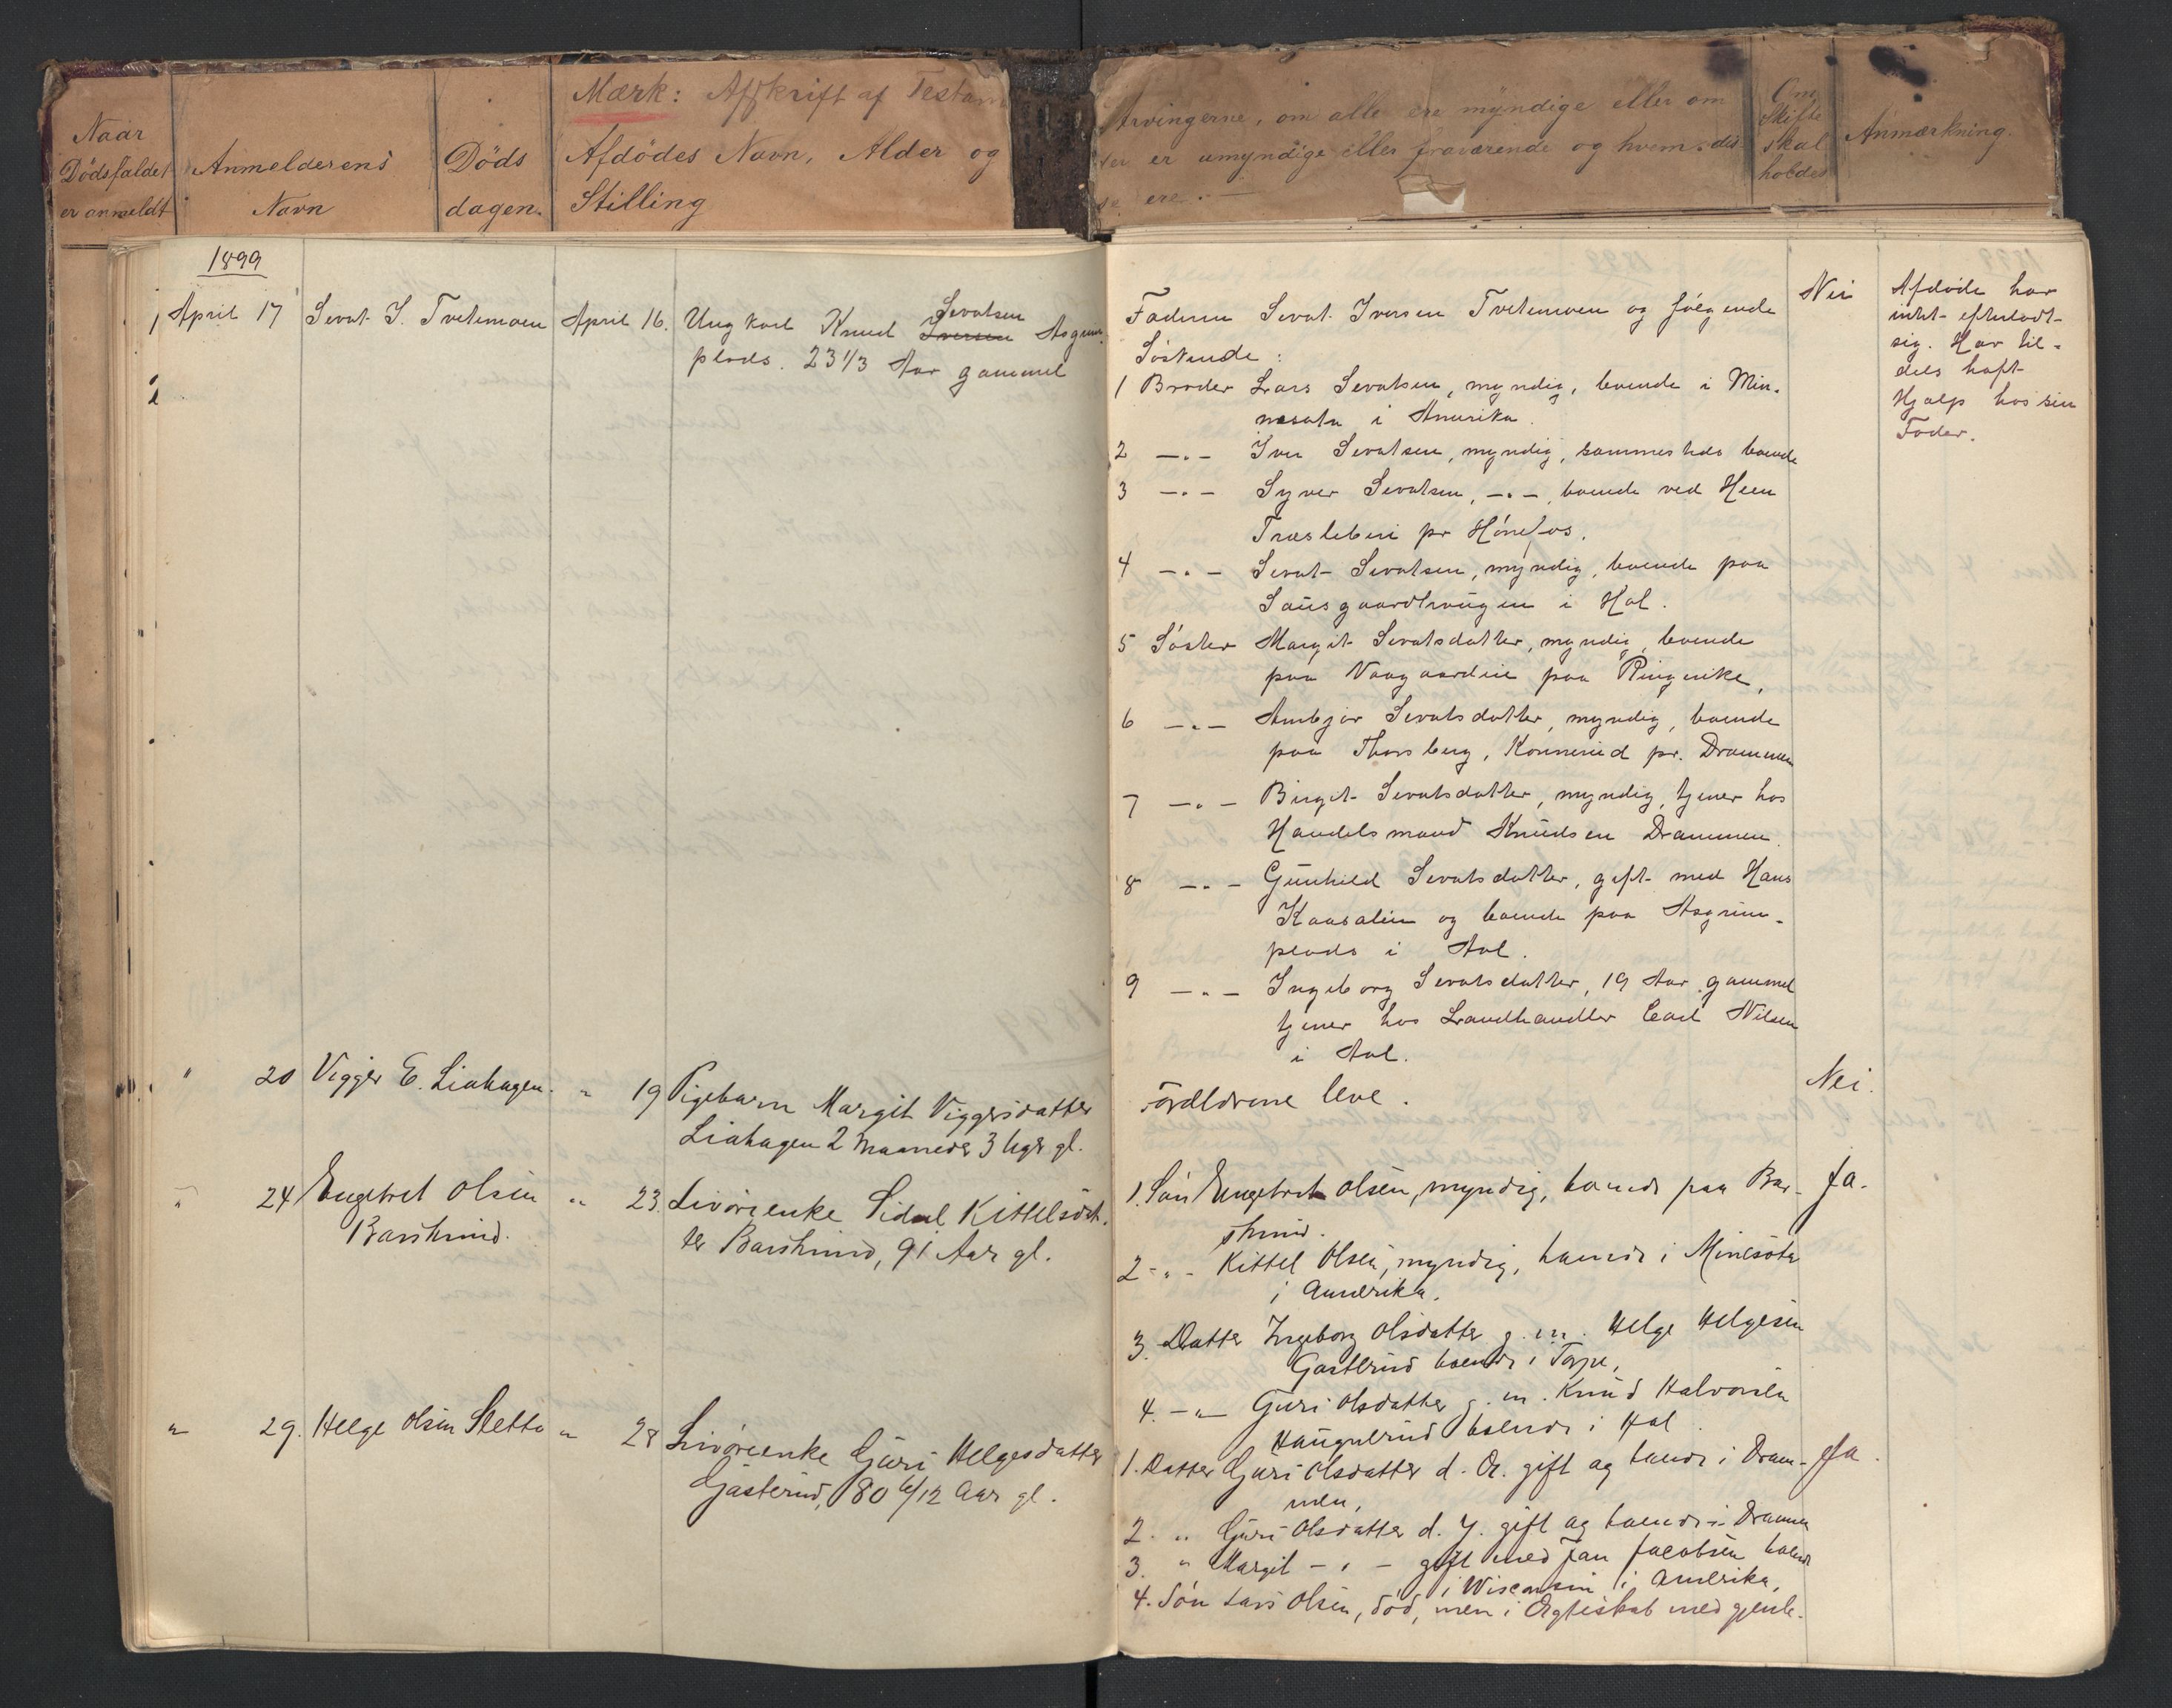 Mærk: Afskrift af Testam
Naar
Dödsfaldet
er anmeldt
Anmelderens
Navn
Döds
dagen.
Afdödes Navn, Alder og
Stilling
Arvingerne, om alle ere myndige eller om
er umyndige eller fraværende og hvem disse
ere.
Om
Skifte
skal
holdes
Anmærkning.
1899
1 April 17 Sevat S. Tvetemoen April 16. Ungkarl Knud Iversen Sevatsen Asgrims
plads. 23 1/3 Aar gammel
2
Faderen Sevat Iversen Tvetemoen og følgende
Söskende:
Nei
Afdøde har
intet efterladt
sig. Har til-
dels haft
Hjælp hos sin
Fader.
1 Broder Lars Sevatsen, myndig, boende i Min-
nesota i Amerika.
2 —"— Iver Sevatsen, myndig, sammesteds boende
3 —"— Syver Sevatsen, —"—, boende ved Heen
Træsliberi pr Hönefos.
4 —"— Sevat Sevatsen, myndig, boende paa
Sausgaardhaugen i Hol.
5 Söster Margit Sevatsdatter, myndig, boende
paa Vaagaardene paa Ringerike,
6 —"— Ambjør Sevatsdatter, myndig, boende
paa Thorsberg, Konnerud pr. Drammen
7 —"— Birgit Sevatsdatter, myndig, tjener hos
Handelsmand Knudsen Drammen.
8 —"— Gunhild Sevatsdatter, gift med Hans
Kaasalien og boende paa Asgrims-
plads i Aal.
9 —"— Ingeborg Sevatsdatter, 19 Aar gammel
tjener hos Landhandler Carl Nilsen
i Aal.
" 20 Vigger E. Liahagen. " 19 Pigebarn Margit Viggersdatter
Liahagen 2 Maaneder 3 Uger gl.
Forældrene leve.
Nei.
" 24 Engebret Olsen
Barskrud.
" 23. Livørenke Sidsel Kittelsdat-
ter Barskrud, 91 Aar gl.
1. Sön Engebret Olsen, myndig, boende paa Bar-
skrud.
Ja.
2 -"- Kittel Olsen, myndig, boende i Minesota
i Amerika.
3. Datter Ingeborg Olsdatter g. m. Helge Helgesen
Gasterud boende i Torpe,
4. —"— Guri Olsdatter g. m. Knud Halvorsen
Haugerud boende i Hol
" 29. Helge Olsen Sletto " 28 Livørenke Guri Helgesdatter
Gjasterud, 80 6/12 Aar gl.
1. Datter Guri Olsdatter d. Æ. gift og boende i Dram-
men,
Ja.
2. " Guri Olsdatter d. Y. gift og boende i Drammen
3. " Margit -"- gift med Jan Jacobsen boende
i Wisconsin i Amerika,
4. Sön Lars Olsen, död, men i Ægteskab med gjenle-